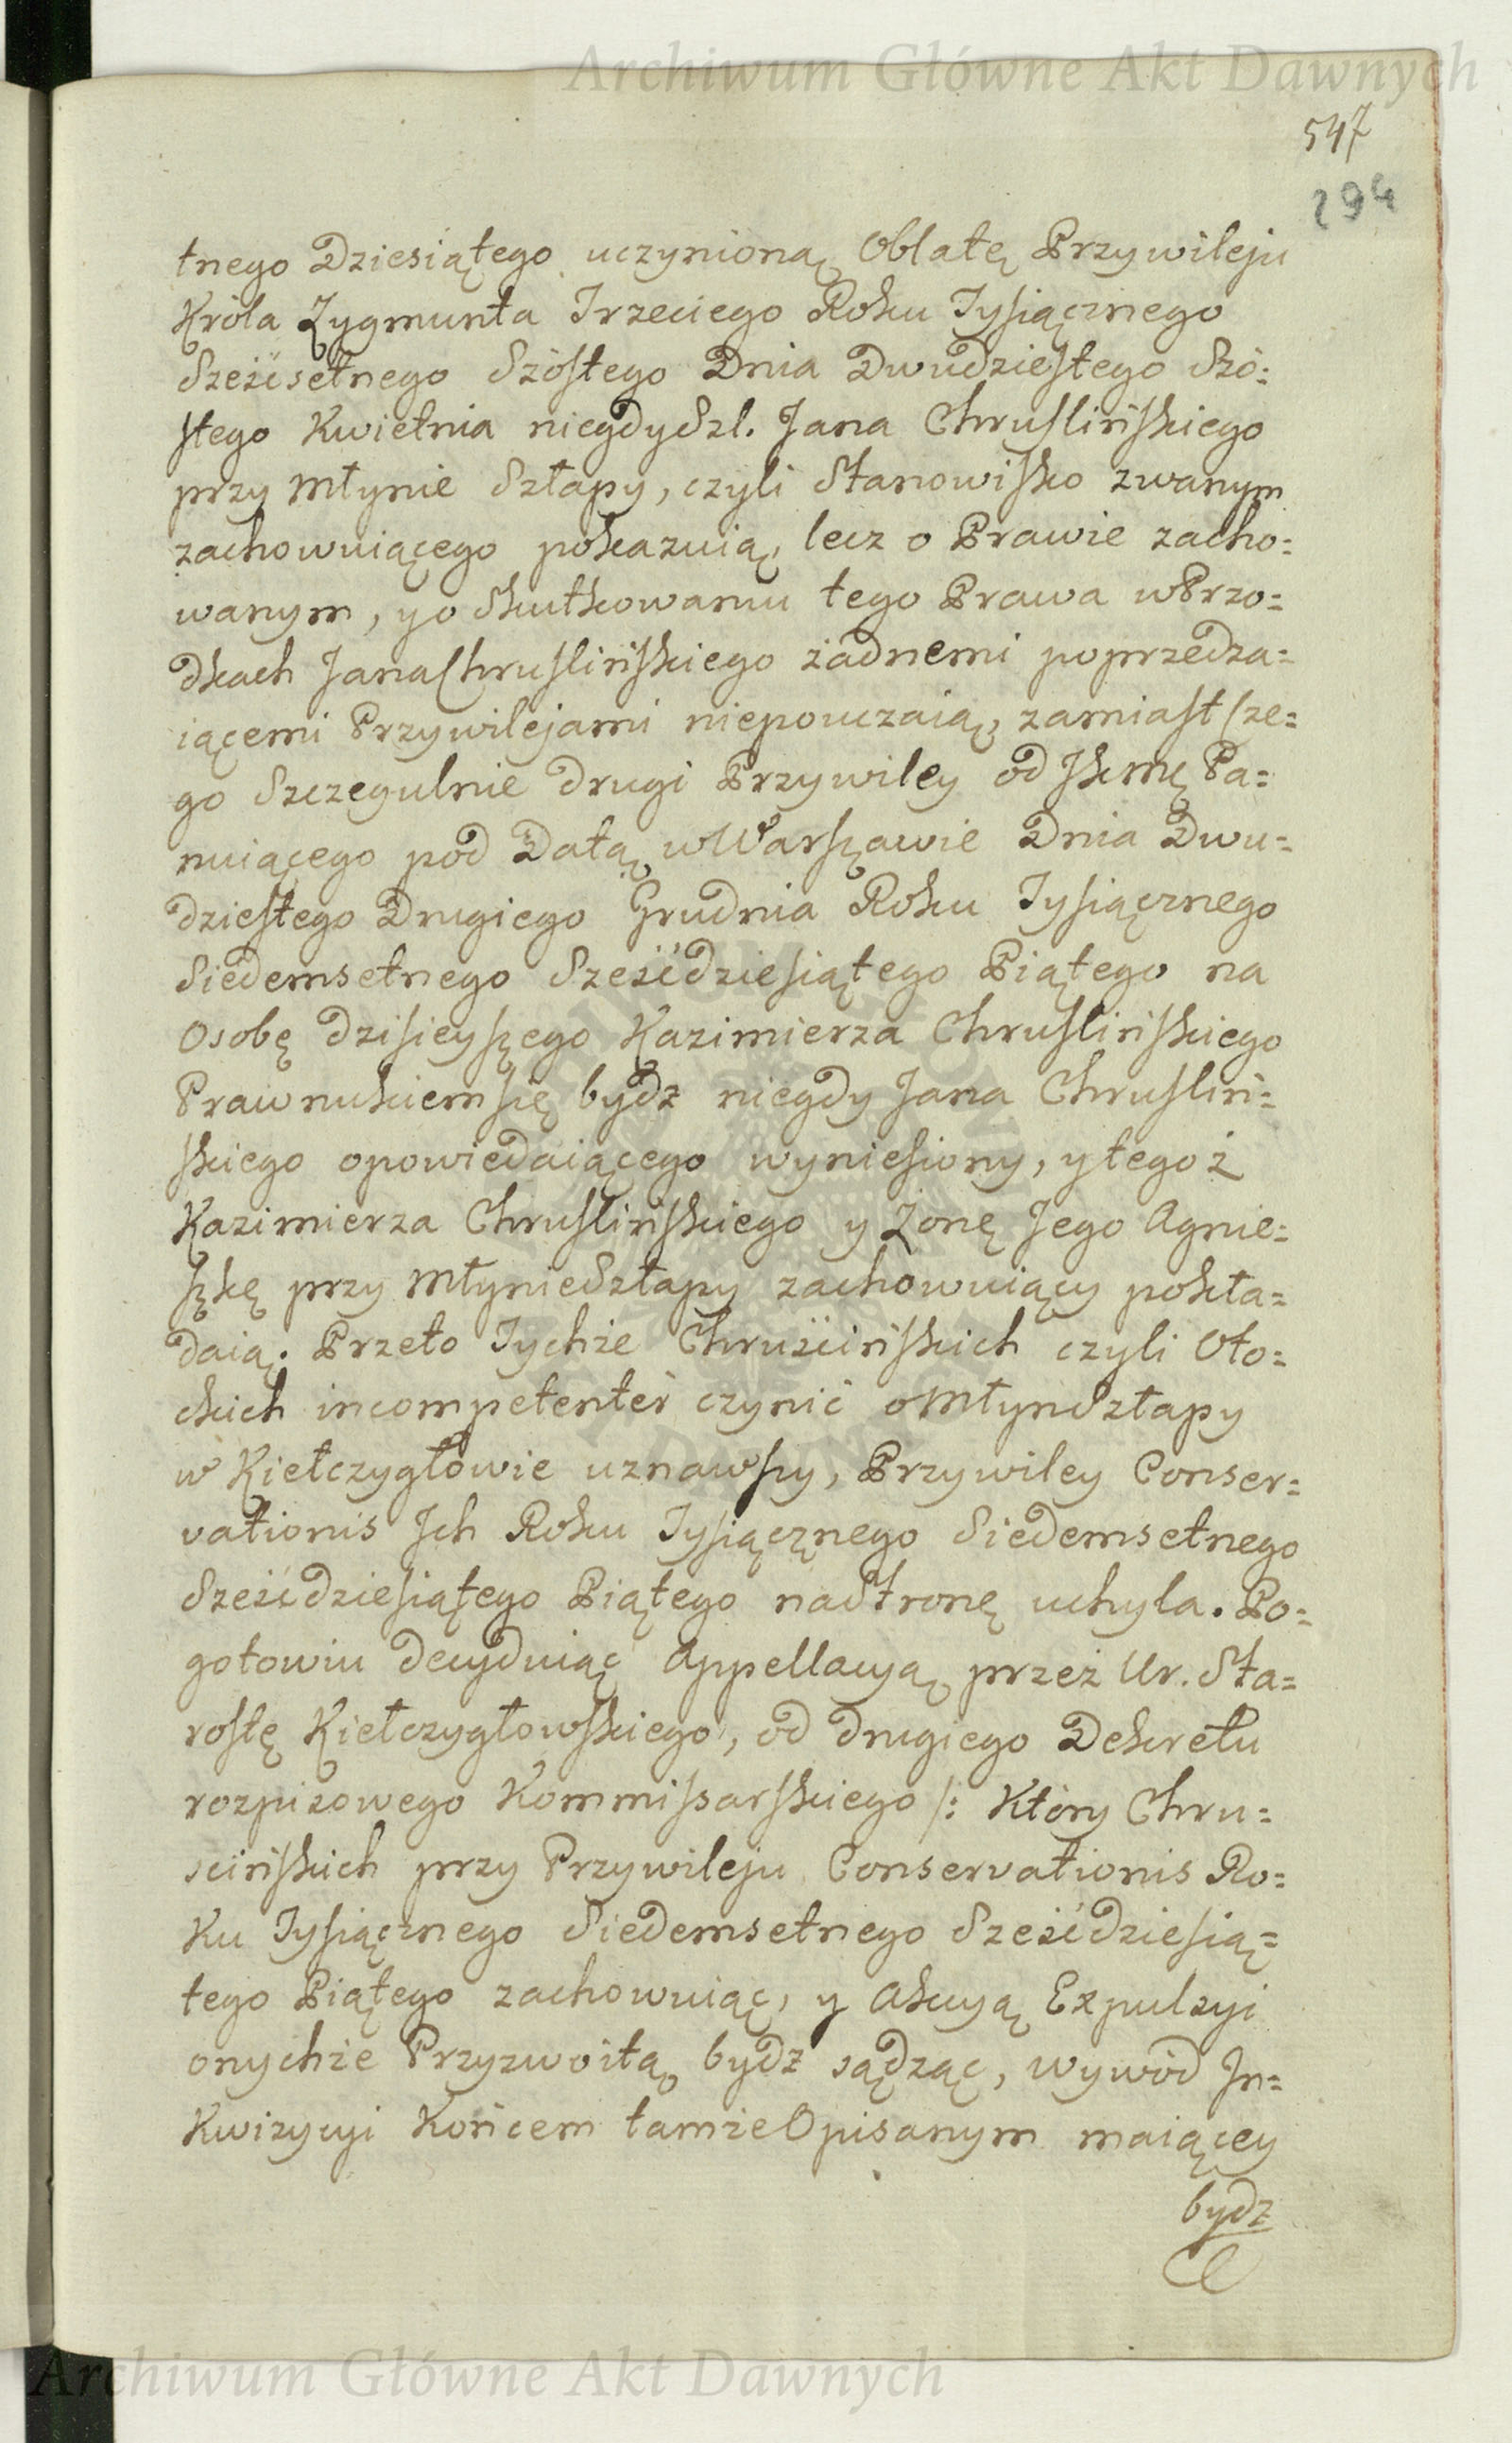 Archiwum Główne Akt Dawnych
547
294
tnego Dziesiątego uczynioną Oblatę Przywileju
Króla Zygmunta Trzeciego Roku Tysiącznego
Sześćsetnego Szóstego Dnia Dwudziestego Szó=
stego Kwietnia niegdy Szl. Jana Chruslińskiego
przy Młynie Szłapy, czyli Stanowisko zwanym
zachowuiącego pokazuią, lecz o Prawie zacho=
wanym, y o Skutkowaniu tego Prawa w Przo=
dkach Jana Chruslińskiego żadnemi poprzedza=
iącemi Przywilejami niepouczaią, zamiast Cze=
go Szczegulnie drugi Przywiley od JKmę Pa=
nuiącego pod Datą w Warszawie Dnia Dwu=
dziestego Drugiego Grudnia Roku Tysiącznego
Siedemsetnego Sześćdziesiątego Piątego na
Osobę dzisieyszego Kazimierza Chruslińskiego
Prawnukiem się bydz niegdy Jana Chrusliń=
skiego opowiedaiącego wyniesiony, y tegoż
Kazimierza Chruslińskiego y Żonę Jego Agnie=
szkę przy Młynie Szłapy zachowuiący pokła=
daią. Przeto Tychże Chruścińskich czyli Oto=
ckich incompetenter czynić o Młyn Szłapy
w Kiełczygłowie uznawszy, Przywiley Conser=
vationis Ich Roku Tysiącznego Siedemsetnego
Sześćdziesiątego Piątego na Stronę uchyla. Po=
gotowiu decyduiąc Appellacyą przez Ur. Sta=
rostę Kiełczygłowskiego, od drugiego Dekretu
rozpisowego Kommissarskiego /: Który Chru=
scińskich przy Przywileju Conservationis Ro=
ku Tysiącznego Siedemsetnego Sześćdziesią=
tego Piątego zachowuiąc, y Akcyą Expulzyi
onychże Przyzwoitą bydz sądząc, wywód In=
kwizycyi Końcem tamże Opisanym maiącey
bydz
Archiwum Główne Akt Dawnych